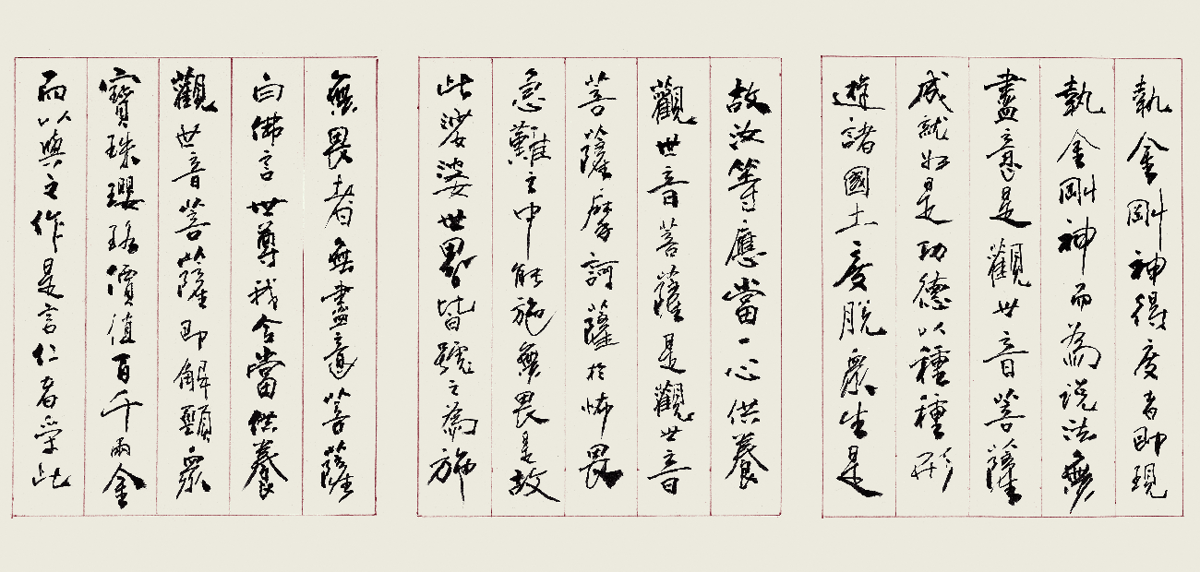 執金剛神得度者即現
執金剛神而為說法無
盡意是觀世音菩薩
成就如是功德以種種形
遊諸國土度脫眾生是
故汝等應當一心供養
觀世音菩薩是觀世音
菩薩摩訶薩於怖畏
急難之中能施無畏是故
此娑婆世界皆號之為施
無畏者無盡意菩薩
白佛言世尊我今當供養
觀世音菩薩即解頸眾
寶珠瓔珞價值百千兩金
而以與之作是言仁者受此